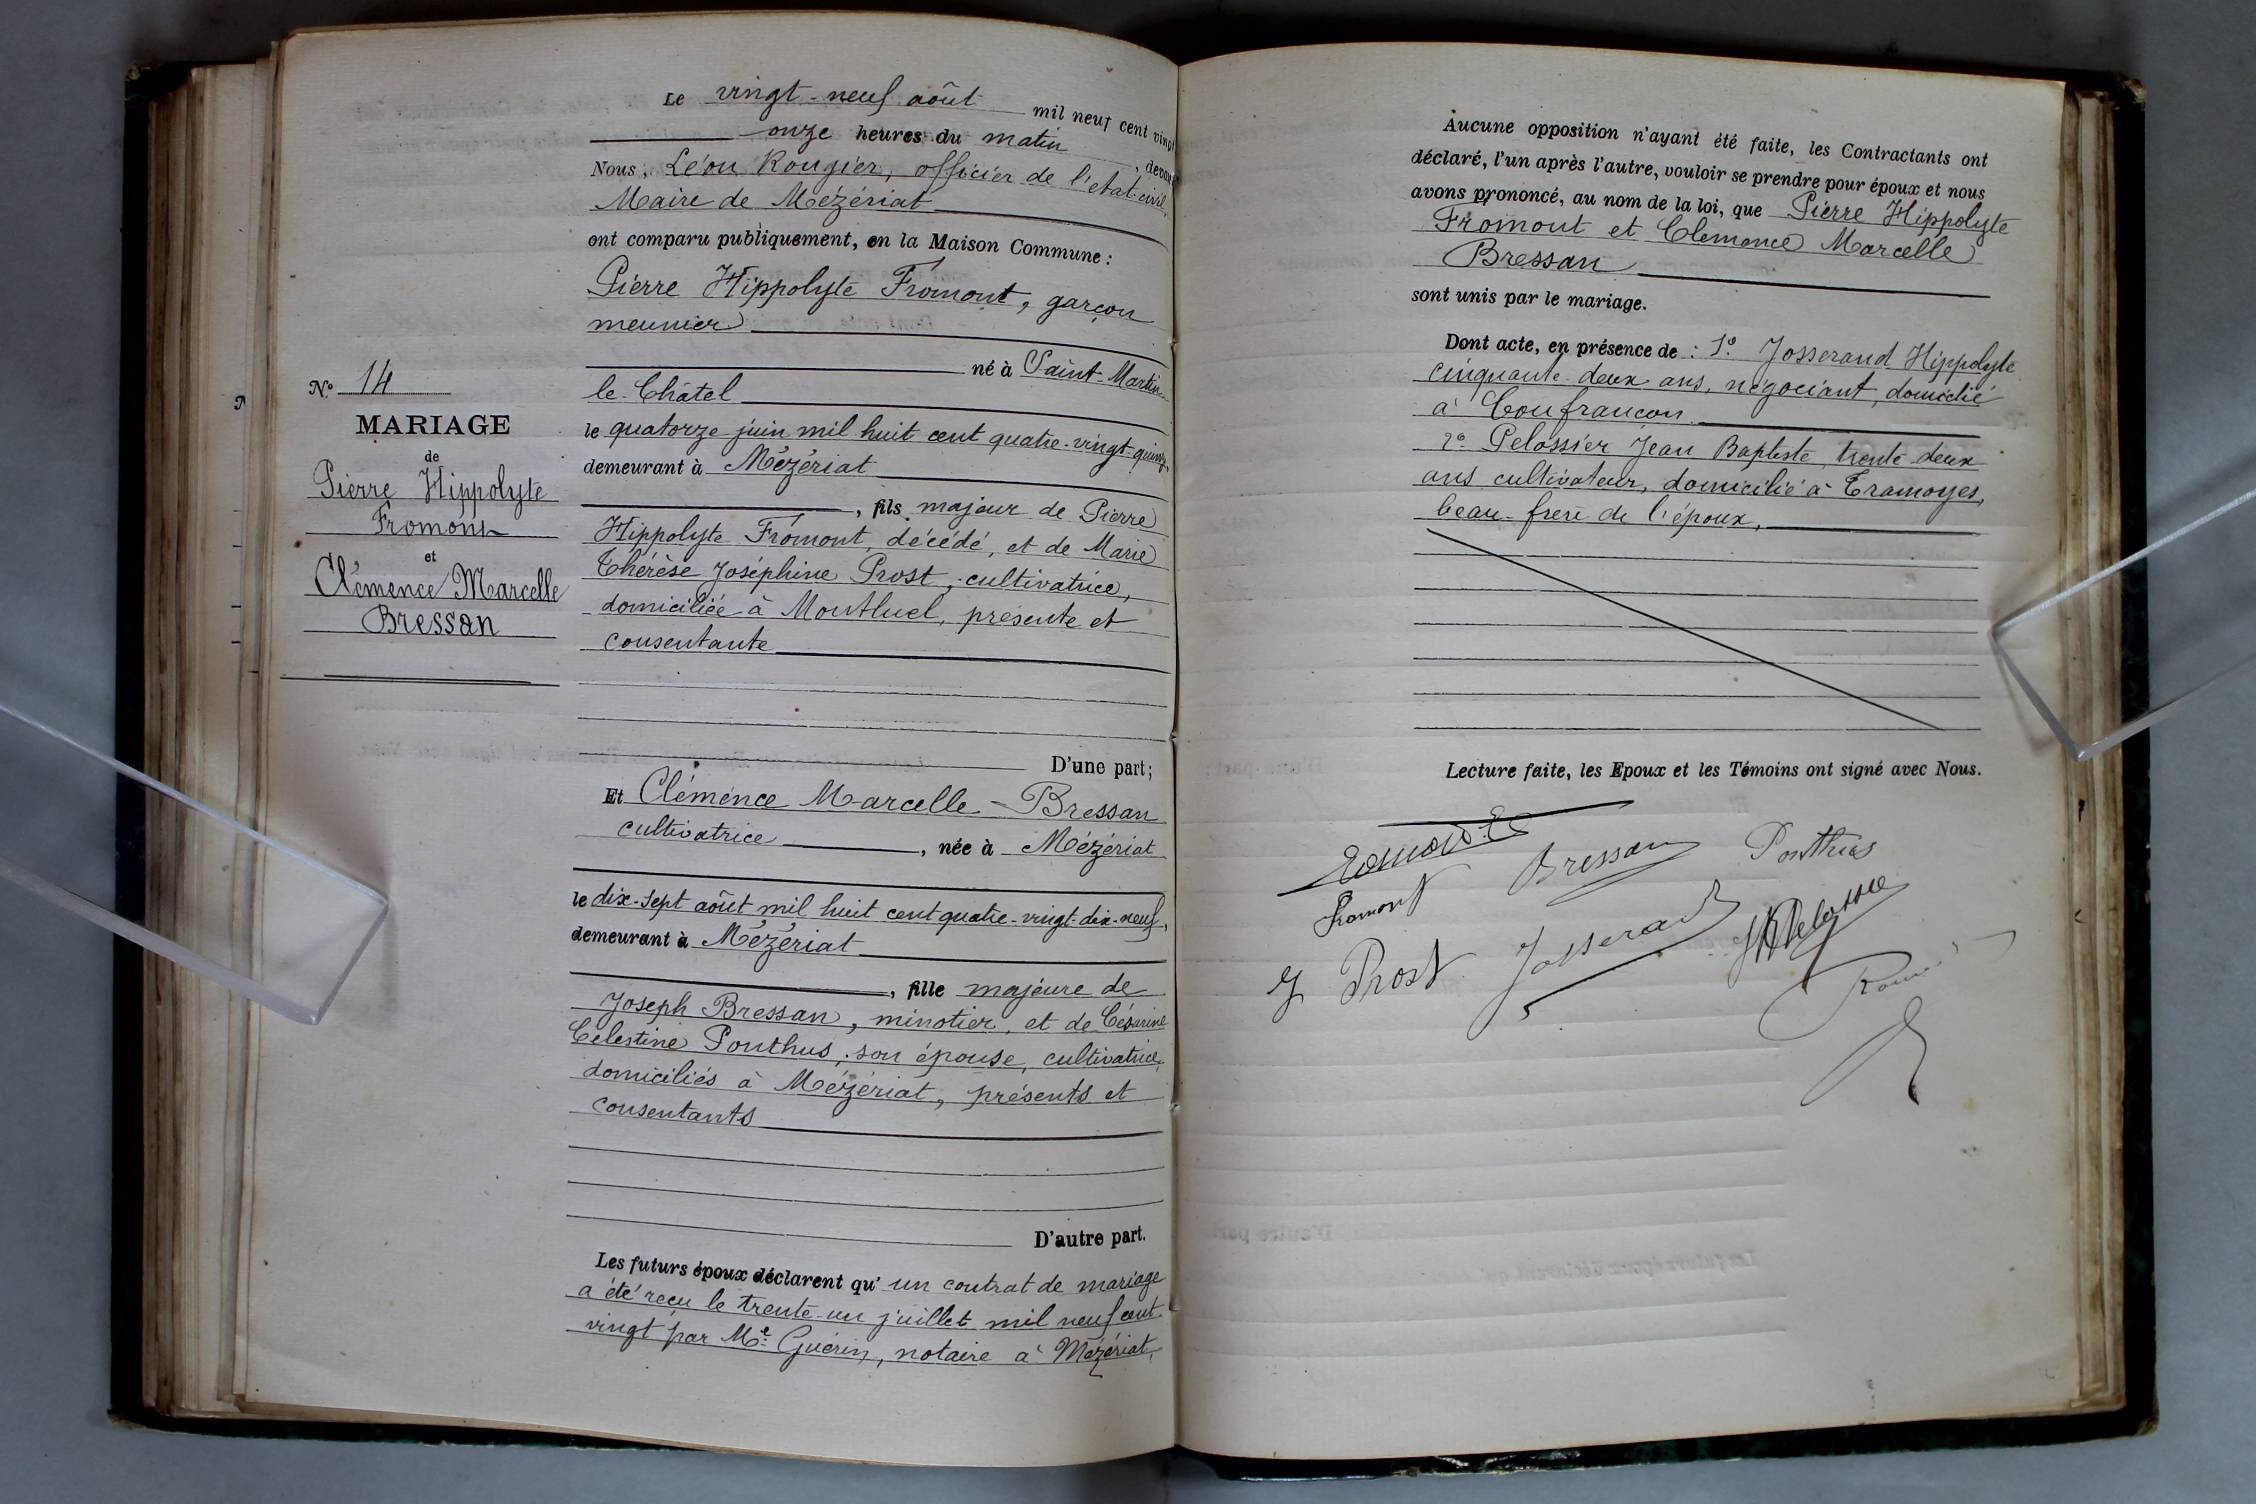 Le vingt-neuf août mil neuf cent vingt
onze heures du matin, devant
Nous, Léon Rougier, officier de l'état-civil,
Maire de Mézériat
ont comparu publiquement, en la Maison Commune :
Pierre Hippolyte Fromont, garçon
meunier
né à Saint-Martin-
le-Châtel
le quatorze juin mil huit cent quatre-vingt-quinze,
demeurant à Mézériat
, fils majeur de Pierre
Hippolyte Fromont, décédé, et de Marie
Thérèse Joséphine Prost, cultivatrice,
domiciliée à Montluel, présente et
consentante
D'une part;
Et Clémence Marcelle Bressan
cultivatrice, née à Mézériat
le dix-sept août mil huit cent quatre-vingt-dix-neuf,
demeurant à Mézériat
, fille majeure de
Joseph Bressan, minotier, et de Césarine
Célestine Ponthus, son épouse, cultivatrice,
domiciliés à Mézériat, présents et
consentants
D'autre part.
Les futurs époux déclarent qu'un contrat de mariage
a été reçu le trente-un juillet mil neuf cent
vingt par Me Guérin, notaire à Mézériat,
N° 14
MARIAGE
de
Pierre Hippolyte
Fromont
et
Clémence Marcelle
Bressan
Aucune opposition n'ayant été faite, les Contractants ont
déclaré, l'un après l'autre, vouloir se prendre pour époux et nous
avons prononcé, au nom de la loi, que Pierre Hippolyte
Fromont et Clémence Marcelle
Bressan
sont unis par le mariage.
Dont acte, en présence de : 1° Josserand Hippolyte
cinquante-deux ans, négociant, domicilié
à Confrançon
2° Pelossier Jean Baptiste, trente-deux
ans cultivateur, domicilié à Tramoyes,
beau-frère de l'époux,
Lecture faite, les Epoux et les Témoins ont signé avec Nous.
Bressan Ponthus
Fromont
J Prost Josserand